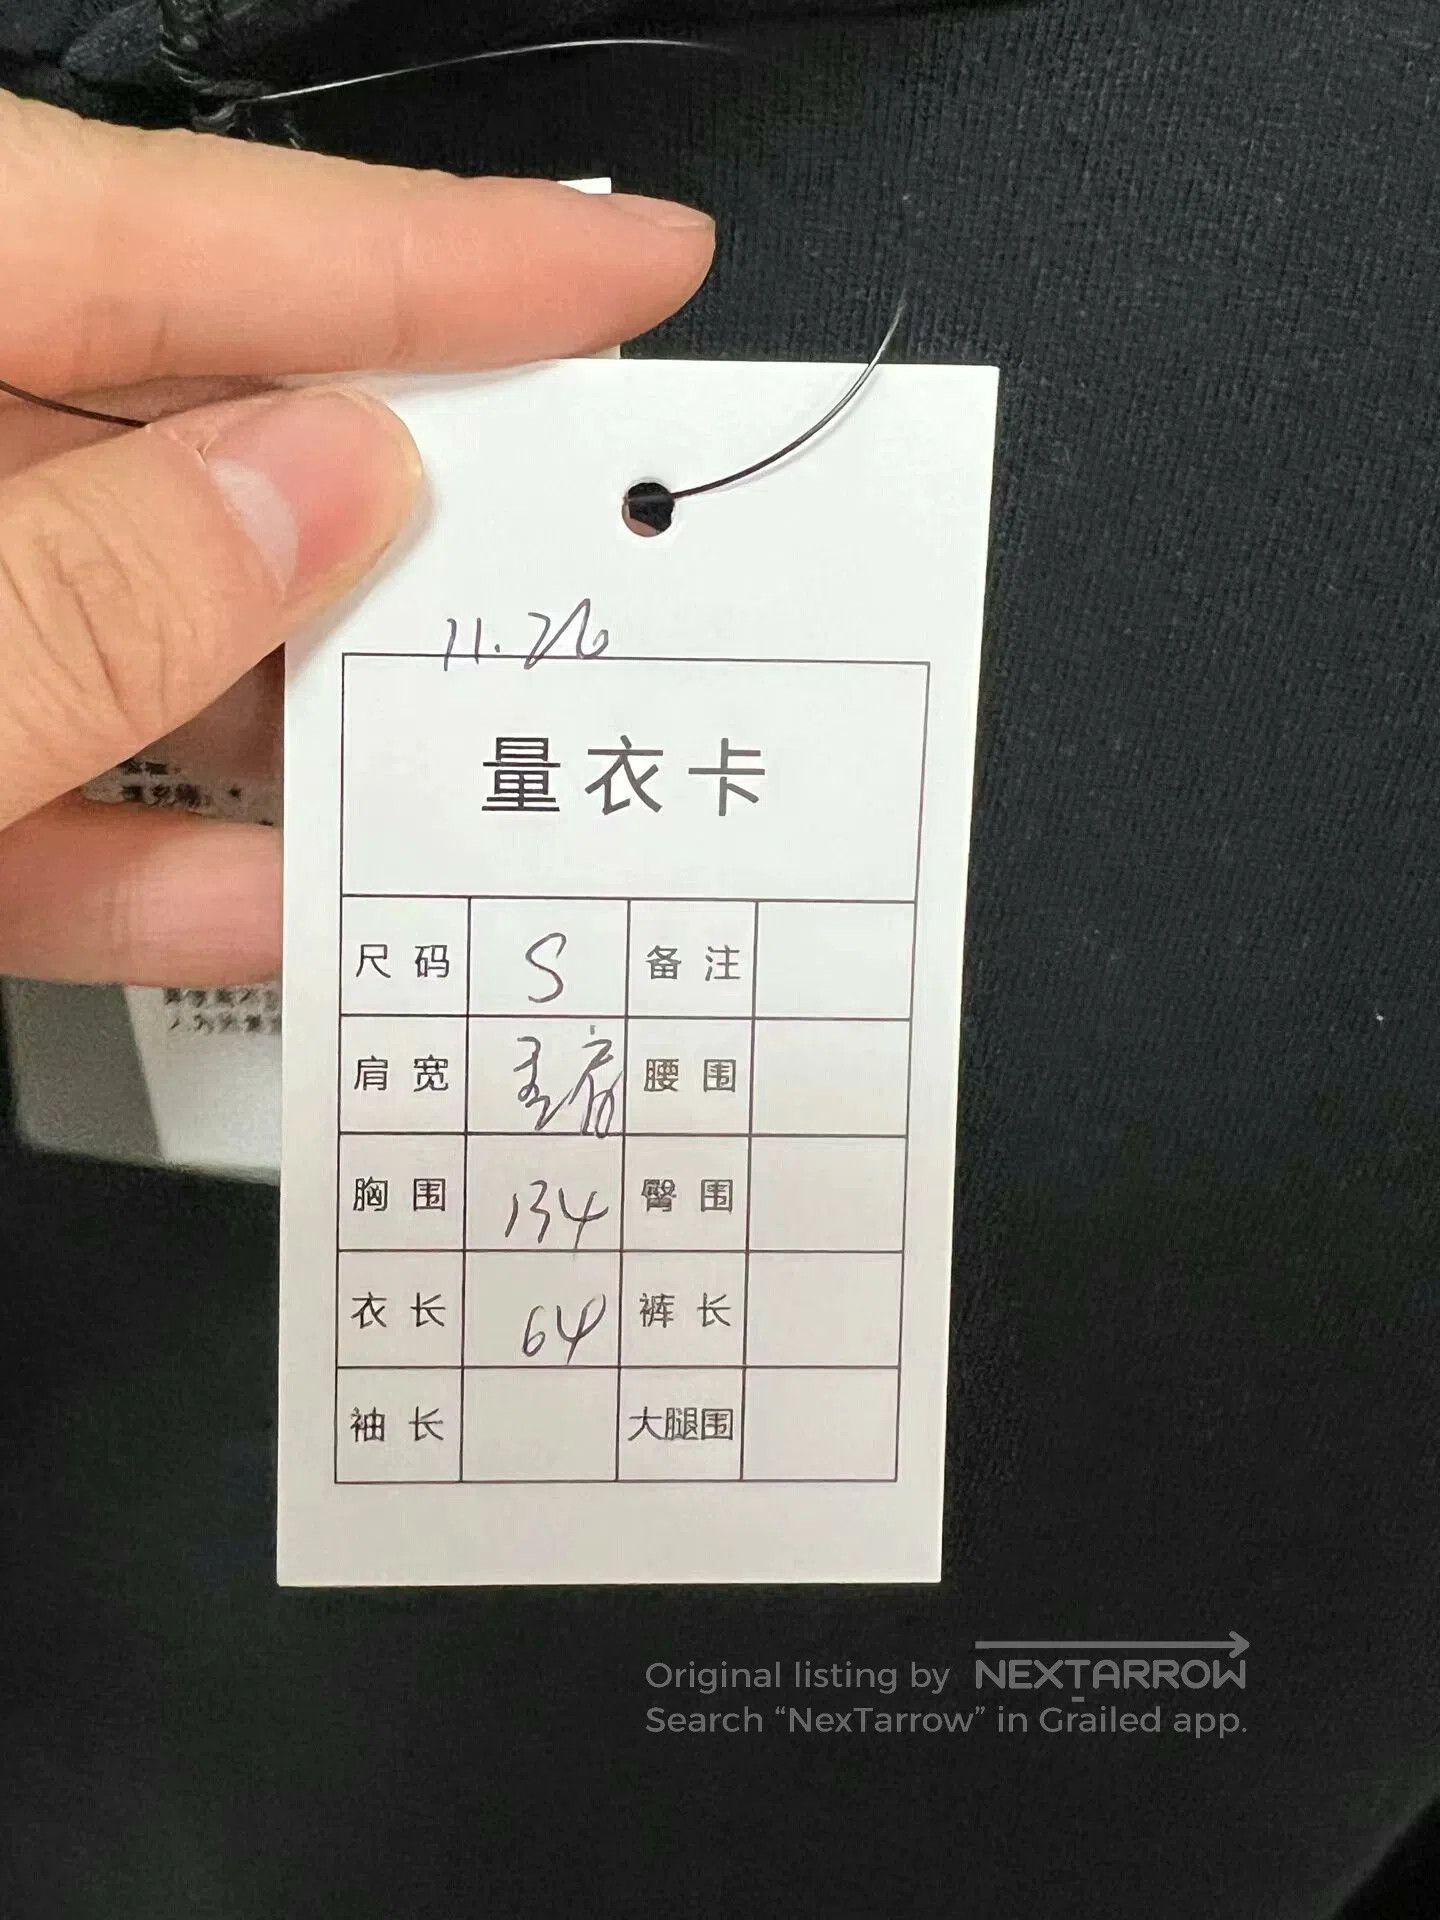 11.26
量衣卡
尺码 S 备注
肩宽 肩 腰围
胸围 134 臀围
衣长 64 裤长
袖长 大腿围
Original listing by NEXTARROW
Search “NexTarrow” in Grailed app.